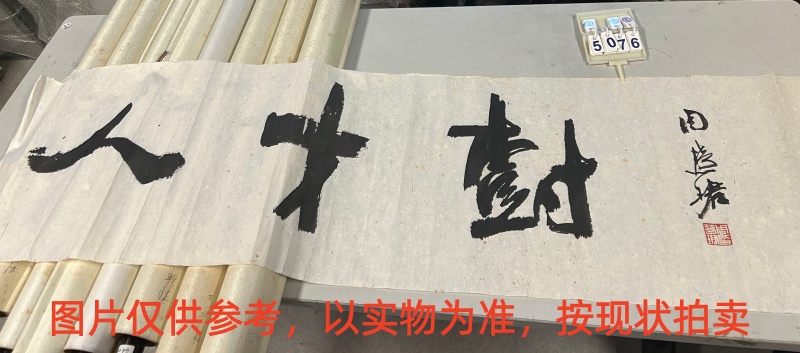 5076
人才尌
周慧珺
图片仅供参考，以实物为准，按现状拍卖